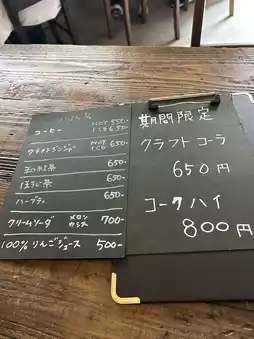 コーヒー HOT 550-
ICE 650-
クラフトジンジャー HOT
ICE 650-
和紅茶 650-
ほうじ茶 650-
ハーブティ 650-
クリームソーダ メロン 700-
カシス
100%りんごジュース 500-
期間限定
クラフトコーラ
650円
コークハイ
800円